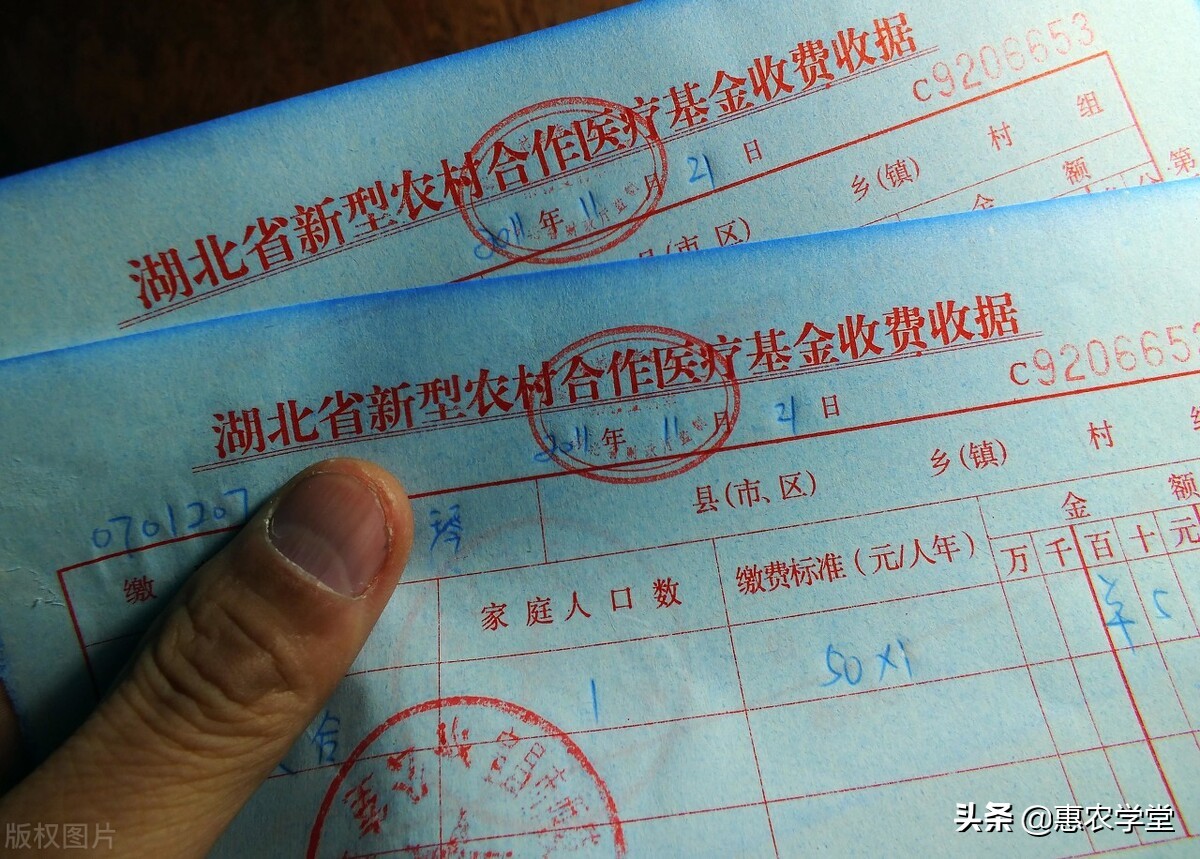 湖北省新型农村合作医疗基金收费收据
C9206653
2011年 11月 21日
乡(镇) 村 组
县(市、区)
金 额
第
湖北省新型农村合作医疗基金收费收据
C920665
2011年 11月 21日
0701207 琴 县(市、区) 乡(镇) 村
缴 家庭人口数 缴费标准(元/人年) 金 额
万 千 百 十 元
合 1 50×1 5
头条 @惠农学堂
版权图片